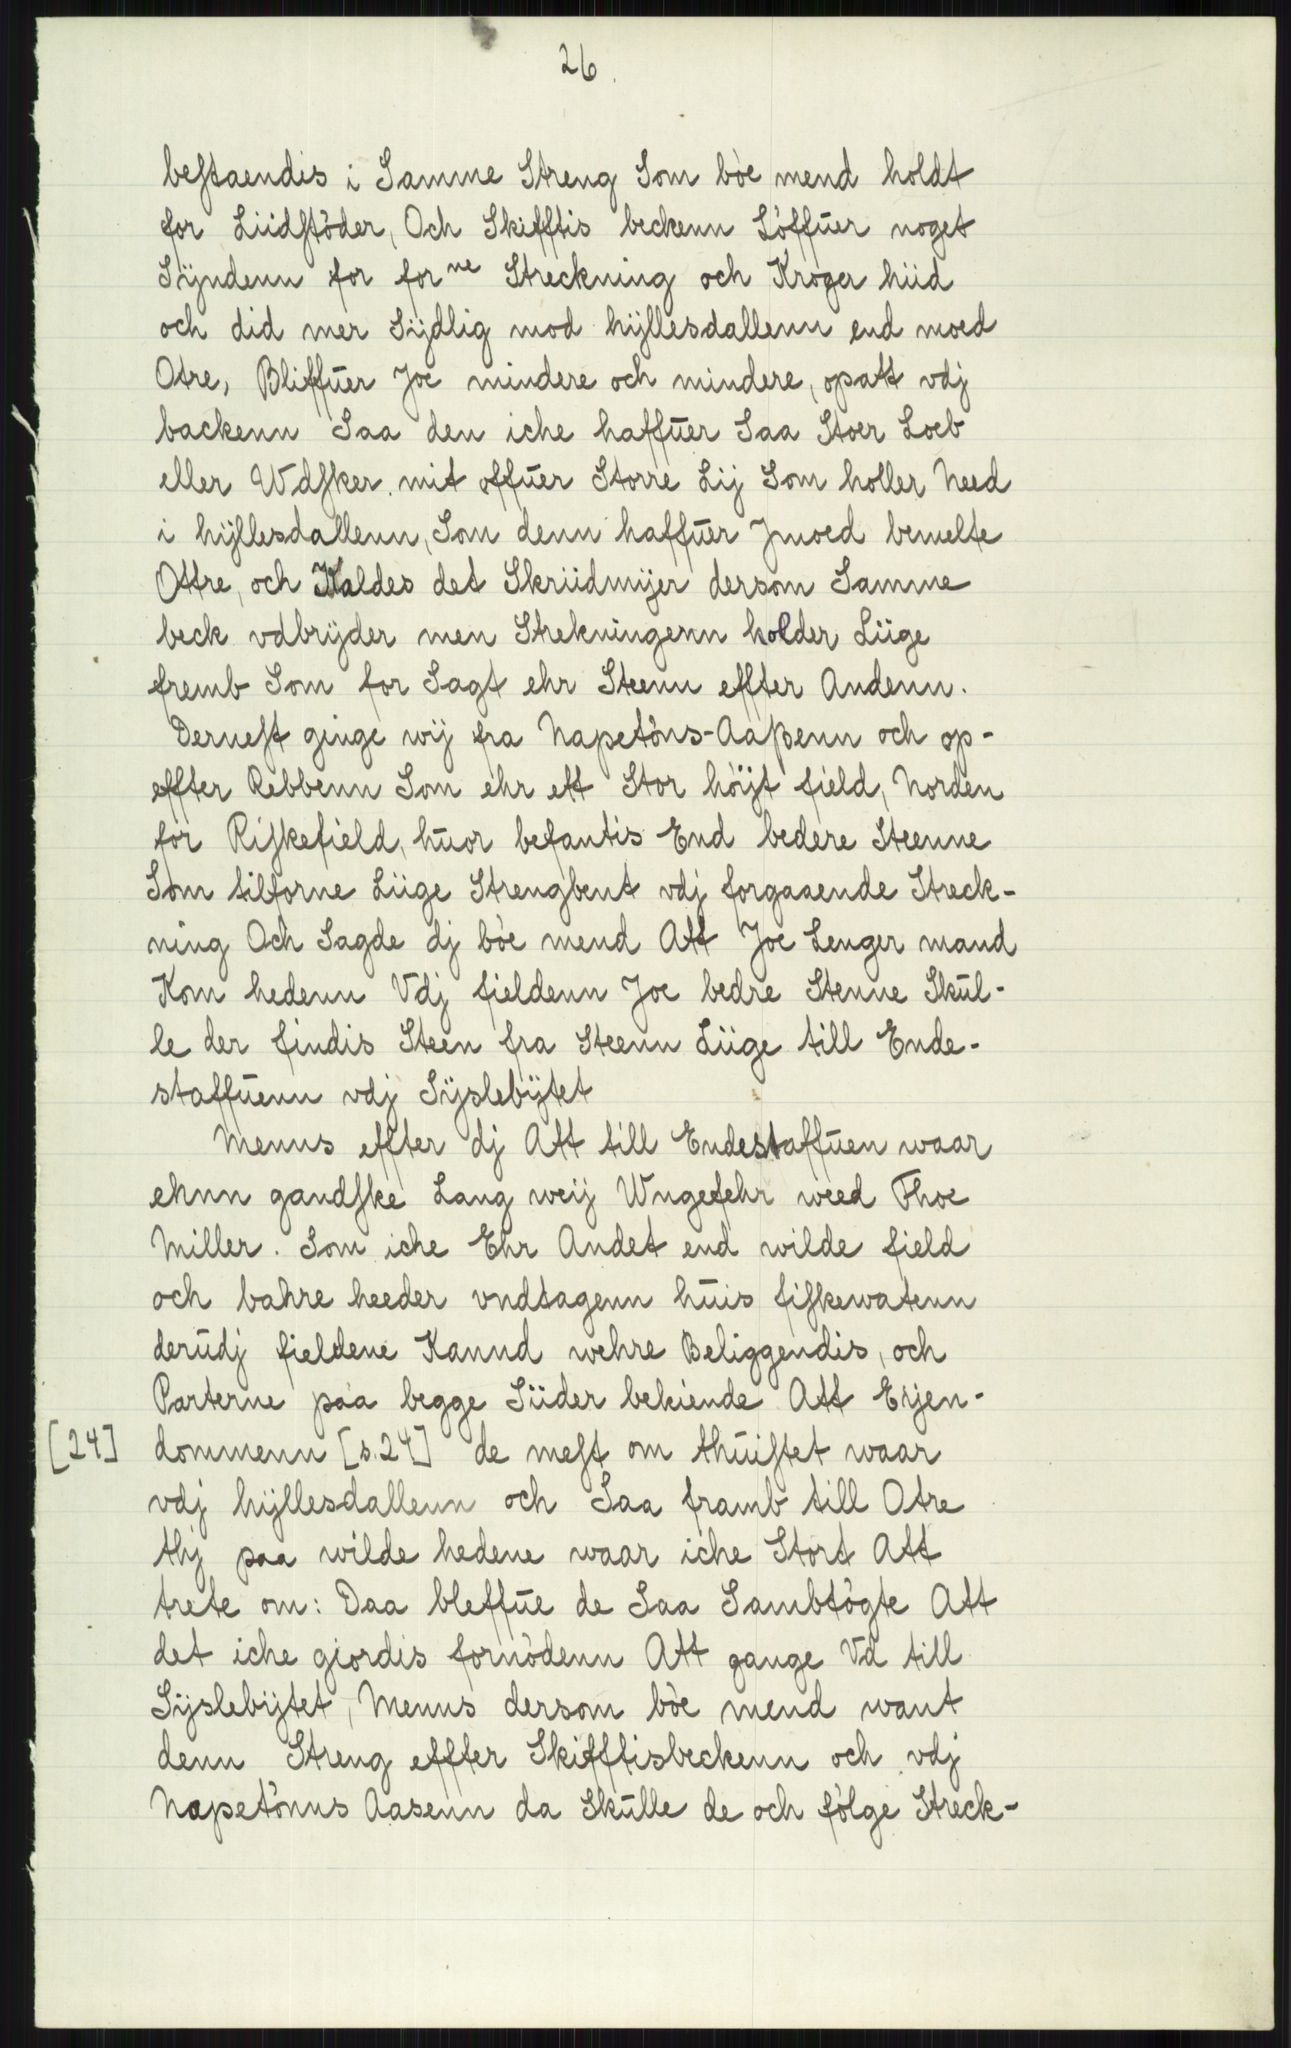 26.
bestaendis i Samme Streng Som bòe mend holdt
for Liidstòder, Och Skifftis beckenn Lòffuer noget
Sÿndenn for forne Streckning och Kroger hiid
och did mer Sÿdlig mod hÿllesdallenn end moed
Otre, Bliffuer Joe mindere och mindere, opatt vdj
backenn Saa den iche haffuer Saa Stoer Loeb
eller Wdsker mit offuer Storre Lij Som holler Need
i hÿllesdallenn, Som denn haffuer Jmoed bemelte
Ottre, och Kaldes det Skriidmÿer dersom Samme
beck vdbrÿder men Strekningenn holder Liige
fremb Som for Sagt ehr Steenn effter Andenn.
Dernest ginge wij fra Napetòns-Aaßenn och op-
effter Ribbenn Som ehr ett Stor hòÿt field, Norden
for Riskefield, huor befantis End bedere Steenne
Som tilforne Liige Strengbent vdj forgaaende Streck-
ning Och Sagde dj bòe mend Att Joe Lenger mand
Kom hedenn Vdj fieldenn Joe bedre Stenne Skul-
le der findis Steen fra Steenn Liige till Ende-
staffuenn vdj Sÿslebÿtet
Menns effter dj Att till Endestaffuen waar
ehnn gandske Lang weij Wngefehr weed Thoe
Miller. Som iche Ehr Andet end wilde field
och bahre heeder vndtagenn huis fiskewatenn
derudj fieldene Kannd wehre Beliggendis, och
Parterne paa begge Siider bekiende Att Eÿen-
[24] dommenn [s.24] de mest om thuistet waar
vdj hÿllesdallenn och Saa framb till Otre
thj paa wilde hedene waar iche Stort Att
trete om: Daa bleffue de Saa Sambtògte Att
det iche giordis fornòdenn Att gange Vd till
Sÿslebÿtet, Menns dersom bòe mend want
denn Streng effter Skifftisbeckenn och vdj
Napetònns Aasenn da Skulle de och fòlge Streck-